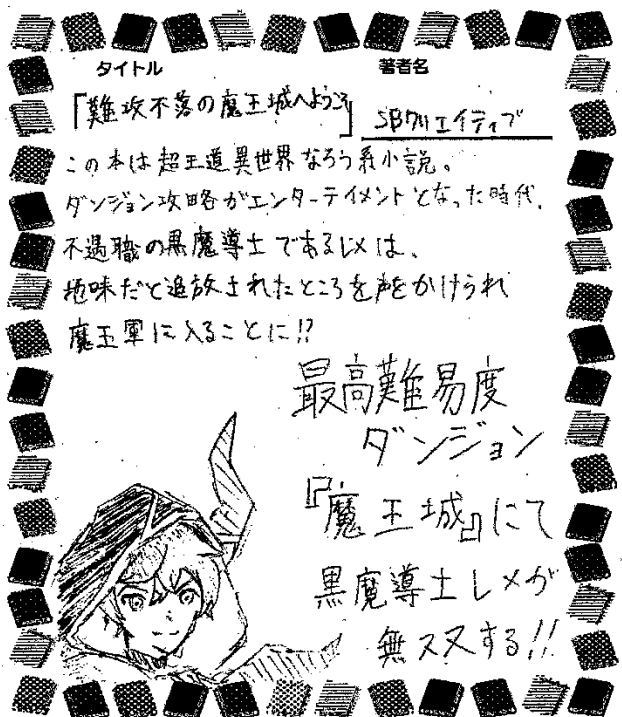 タイトル
著者名
「難攻不落の魔王城へようこそ」
SBクリエイティブ
この本は超王道異世界なろう系小説。
ダンジョン攻略がエンターテイメントとなった時代、
不遇職の黒魔導士であるレメは、
地味だと追放されたところを声をかけられ
魔王軍に入ることに!?
最高難易度
ダンジョン
『魔王城』にて
黒魔導士レメが
無双する!!